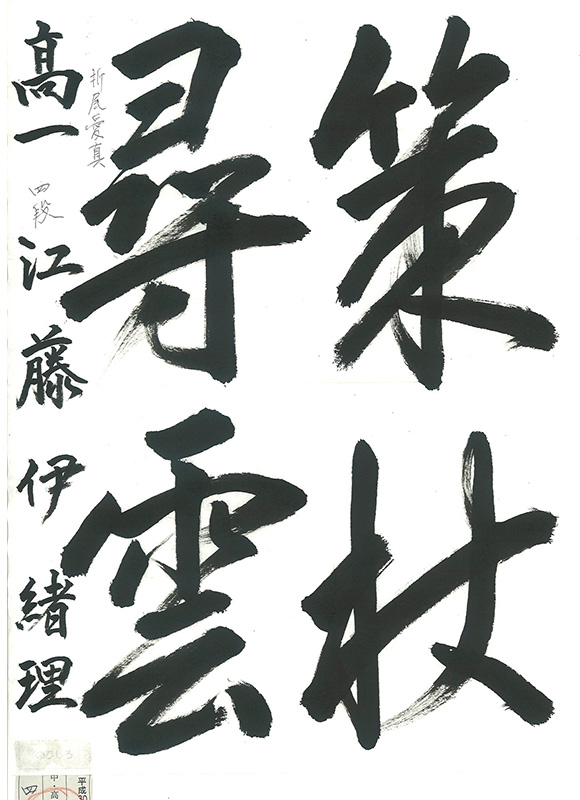 策杖
尋雲
折尾愛真
高一 四段 江藤伊緒理
平成30
甲・高
四